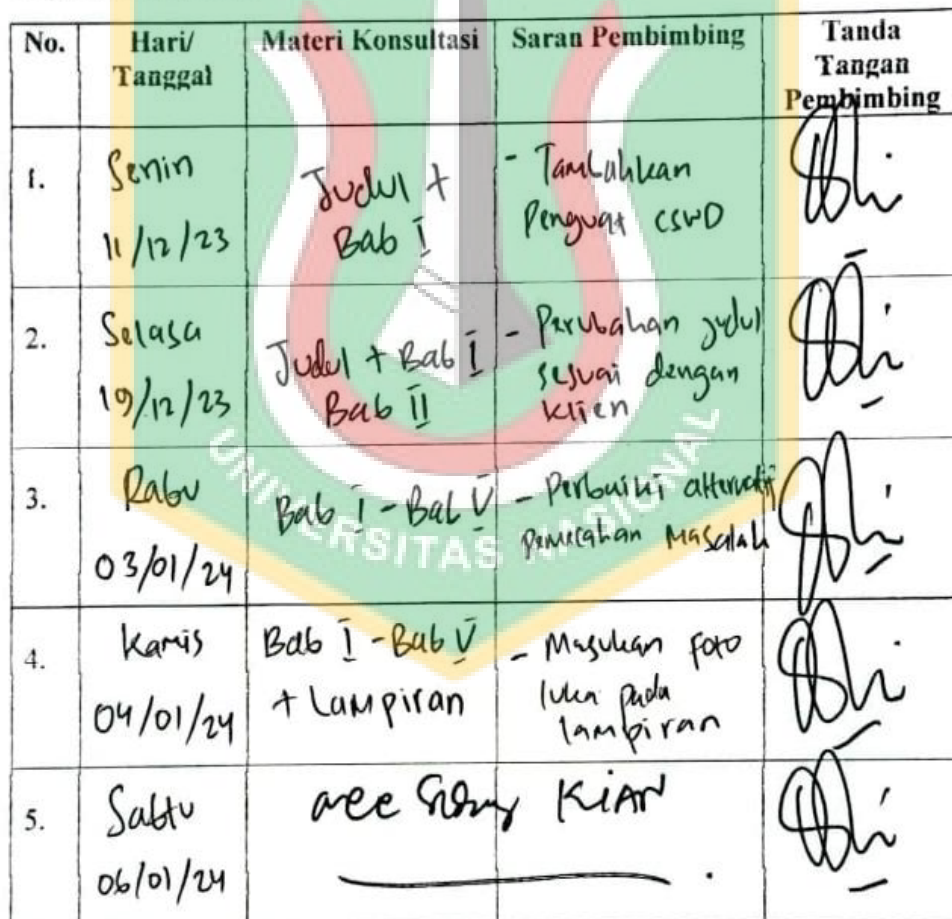 No.
Hari/
Tanggal
Materi Konsultasi
Saran Pembimbing
Tanda
Tangan
Pembimbing
1.
Senin
11/12/23
Judul +
Bab I
- Tambahkan
Penguat CSWD
2.
Selasa
19/12/23
Judul + Bab I
Bab II
- Perubahan judul
sesuai dengan
klien
3.
Rabu
03/01/24
Bab I - Bab V
- Perbaiki alternatif
pemecahan Masalah
4.
Kamis
04/01/24
Bab I - Bab V
+ Lampiran
- Masukan foto
luka pada
lampiran
5.
Sabtu
06/01/24
acc Sidang KIAN
UNIVERSITAS NASIONAL